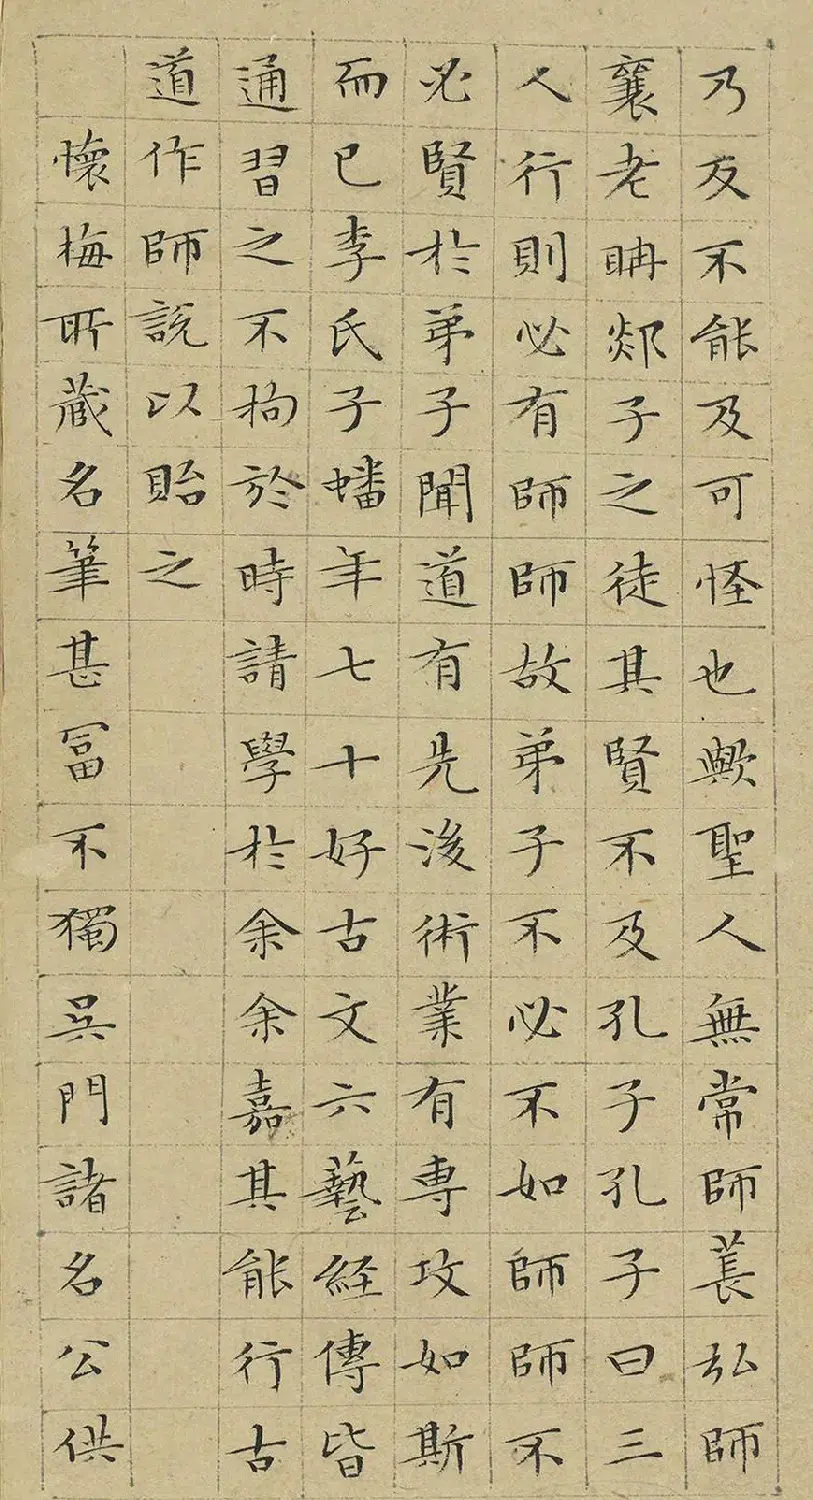 乃反不能及可怪也歟聖人無常師萇弘師
襄老聃郯子之徒其賢不及孔子孔子曰三
人行則必有師師故弟子不必不如師師不
必賢於弟子聞道有先後術業有專攻如斯
而已李氏子蟠年七十好古文六藝経傳皆
通習之不拘於時請學於余余嘉其能行古
道作師說以貽之
懷梅所藏名筆甚冨不獨吳門諸名公供